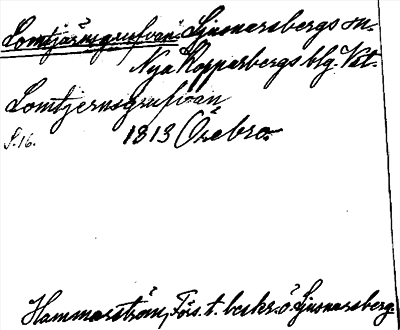 Lomtjärnsgrufvan. Ljusnarsbergs sn.
Nya Kopparbergs blg. Vst.
Lomtjernsgrufvan
S.16. 1813 Örebro.
Hammarström, Förs. t. beskr. ö. Ljusnarsberg